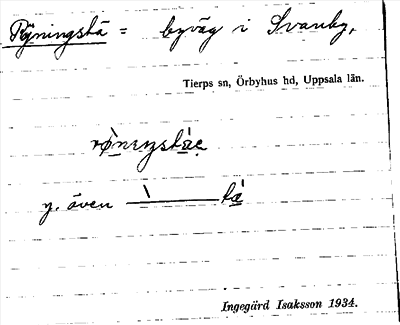 Röjningstä = byväg i Svanby.
Tierps sn, Örbyhus hd, Uppsala län.
y. även ——— tá
Ingegärd Isaksson 1934.